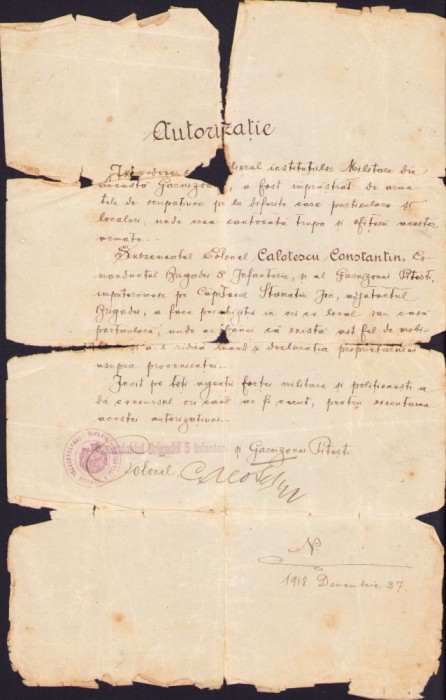 Autorizație
In vedere că mobilierul institutiilor Militare din
această Garnizoană, a fost imprăștiat de arma
tele de ocupatiune pe la diferite case particulare și
localuri, unde era cantonată trupa și ofițerii acestor
armate. -
Subsemnatul Colonel Calotescu Constantin, Co-
mandantul Brigadei 5 Infanterie, și al Garnizoanei Pitești,
imputernicesc pe Căpitanul Stanatiu Ion, adjutantul
Brigadei, a face perchizitie in ori ce local sau casă
particulară, unde ar bănui că există ast fel de mobi-
lier și a-l ridica luand declaratia proprietarului
asupra provenientei. -
Invit pe toti agentii fortei militare și politienesti a
da concursul ori cand ar fi cerut, pentru executarea
acestei autorizatiuni. -
Comandantul Brigadei 5 Infanterie și Garnizoanei Pitești
Colonel Calotescu
No
1918 Decembrie 27.